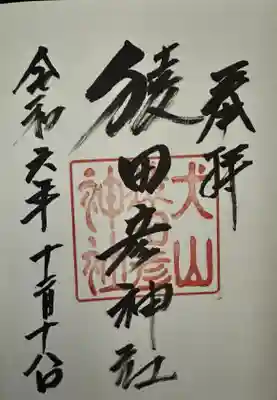 奉拝
猿田彦神社
犬山
猿田彦
神社
令和六年十二月十八日